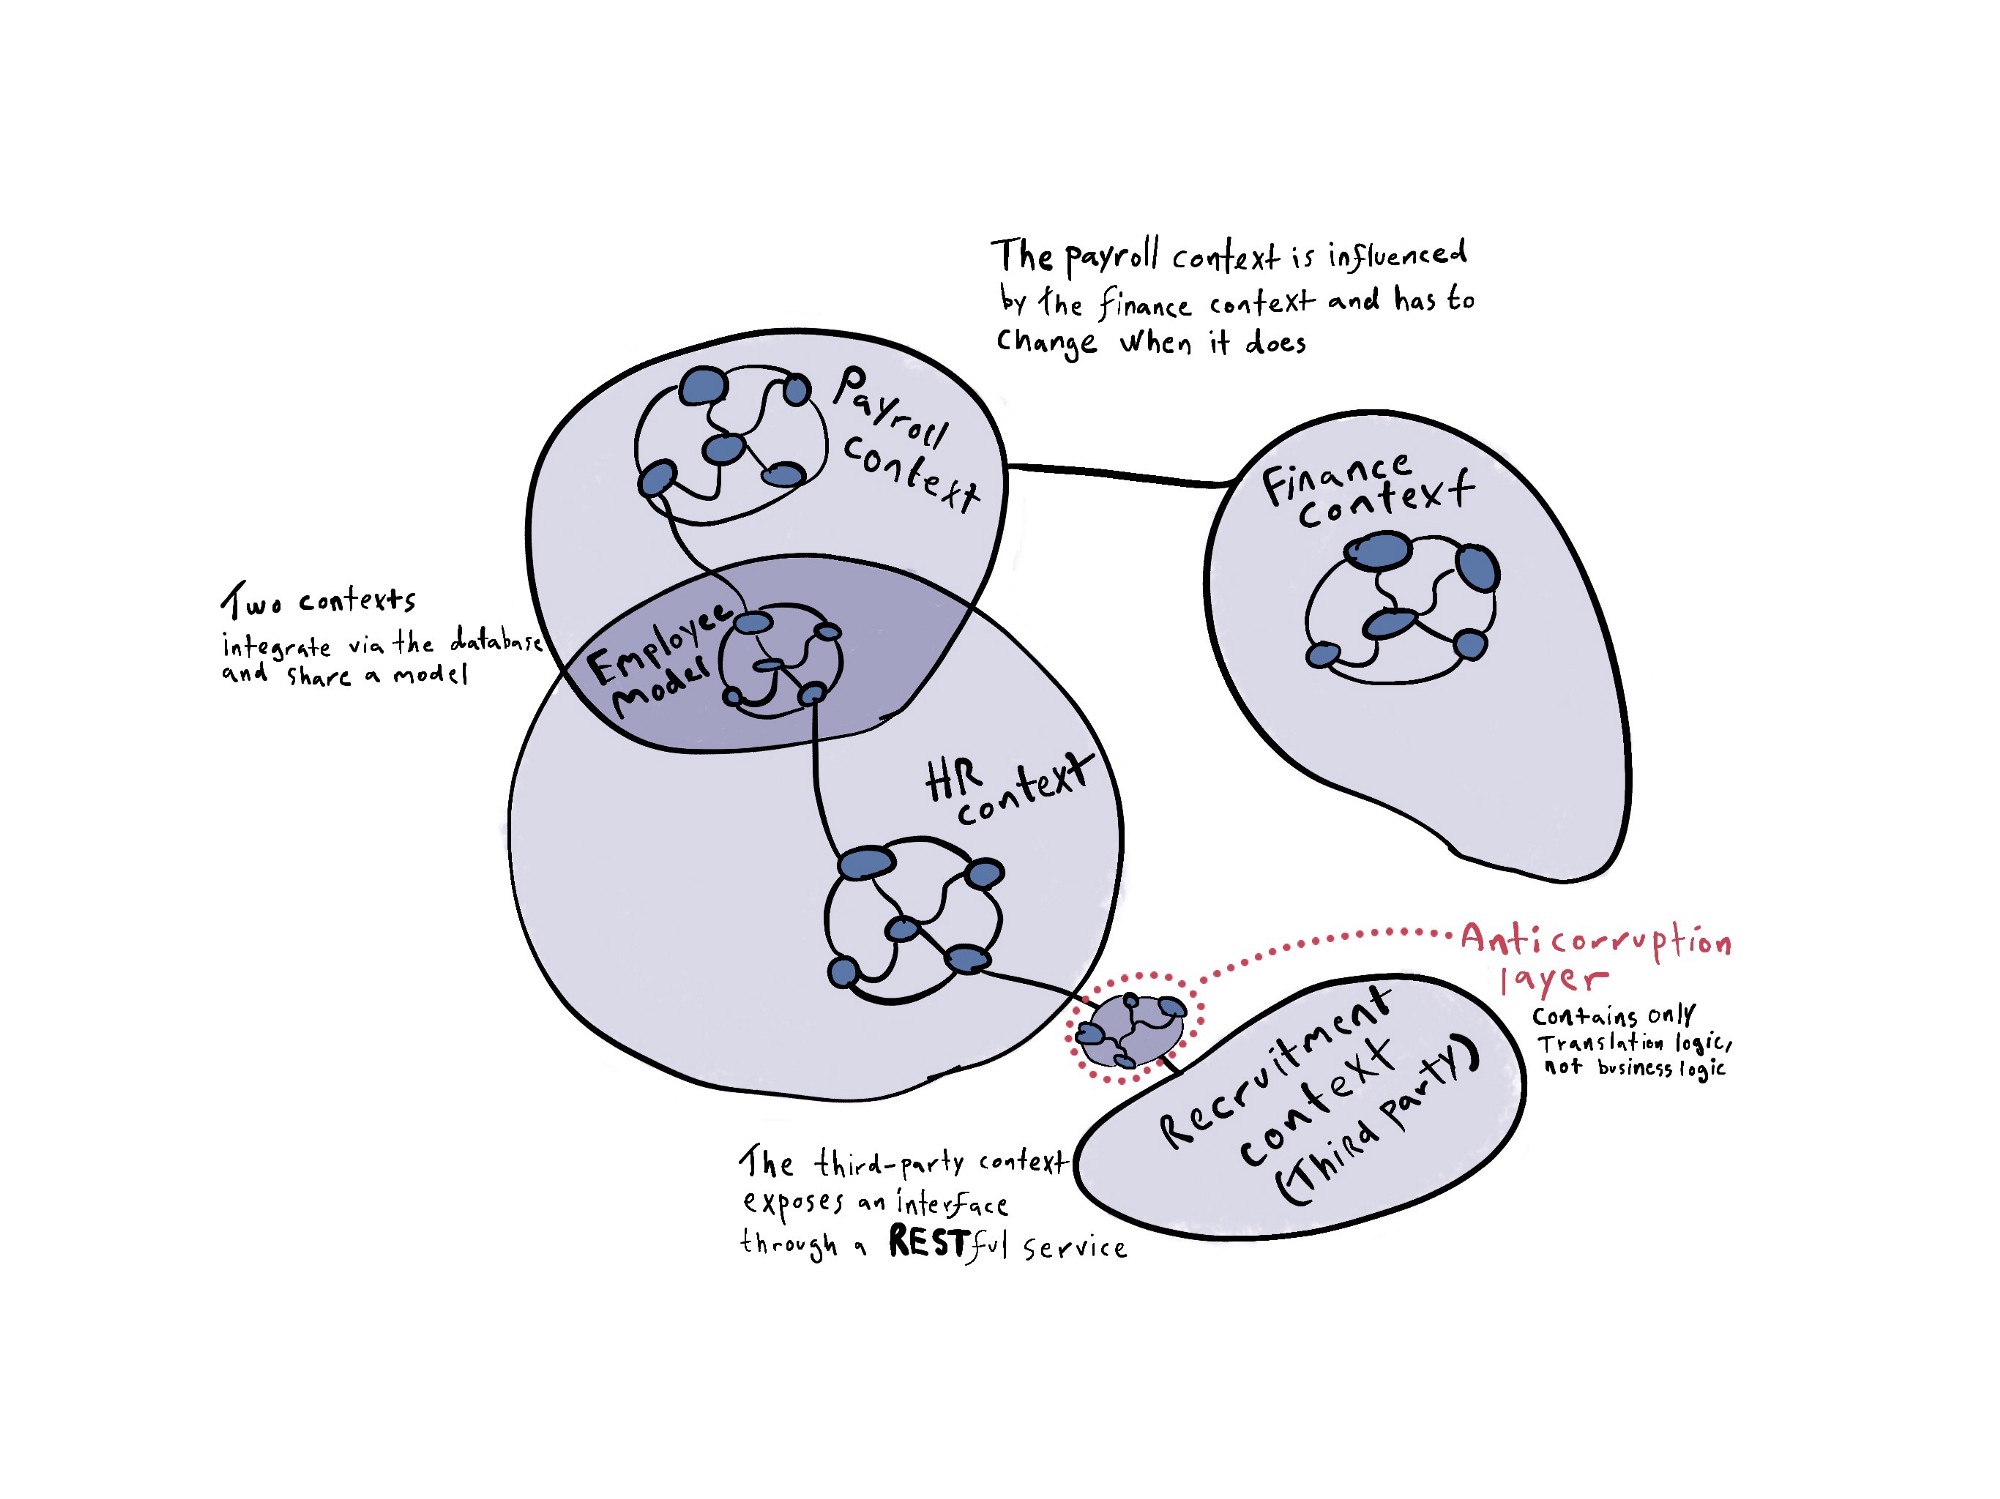 The payroll context is influenced
by the finance context and has to
change when it does
Payroll
context
Finance
context
Two contexts
integrate via the database
and share a model
Employee
model
HR
context
Anticorruption
layer
Contains only
Translation logic,
not business logic
Recruitment
context
(Third party)
The third-party context
exposes an interface
through a RESTful service